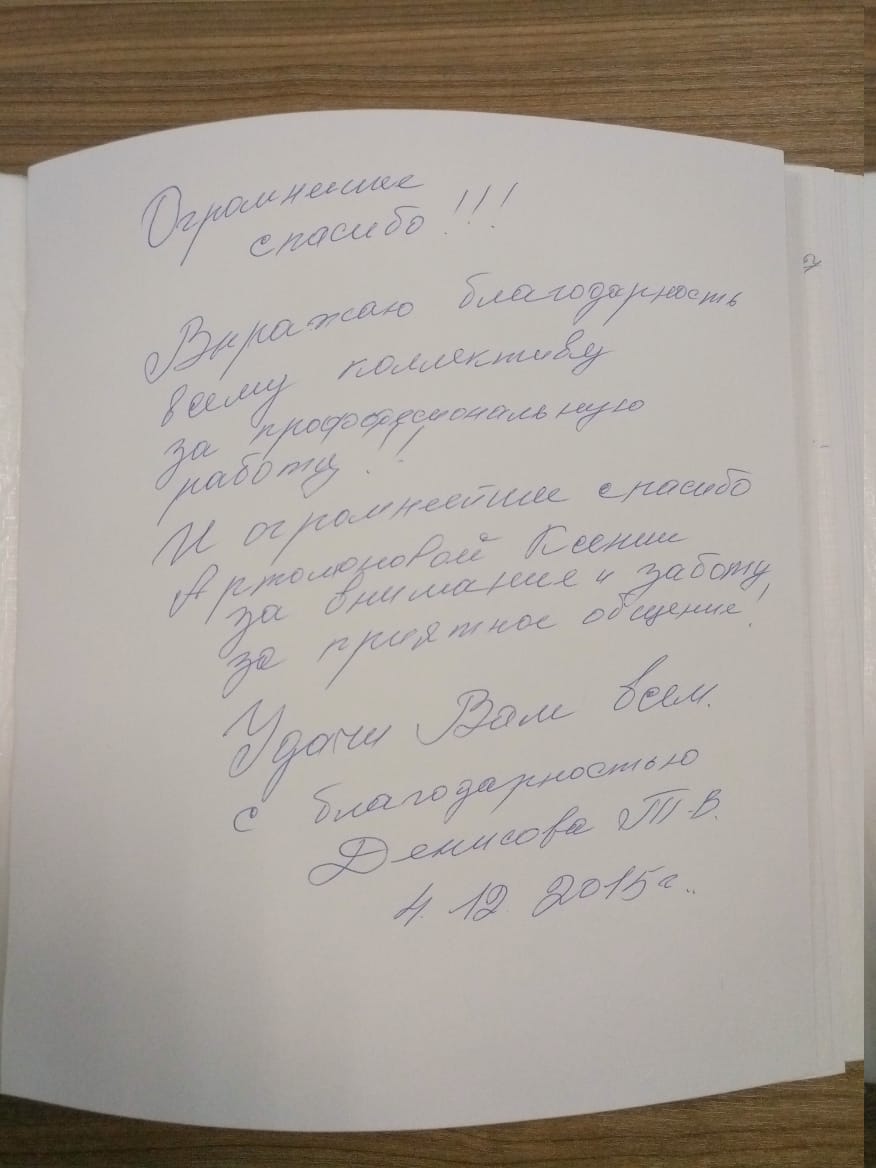 Огромнейшее
спасибо!!!
Выражаю благодарность
всему коллективу
за профессиональную
работу!!
И огромнейшее спасибо
Ксении
за внимание и заботу
за приятное общение!
Удачи Вам всем.
с благодарностью
Денисова Т.В.
4.12.2015г..